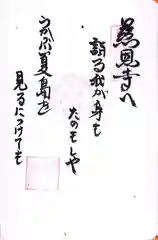 慈恩寺へ
詣る我が身も
たのもしや
うかぶ夏島を
見るにつけても